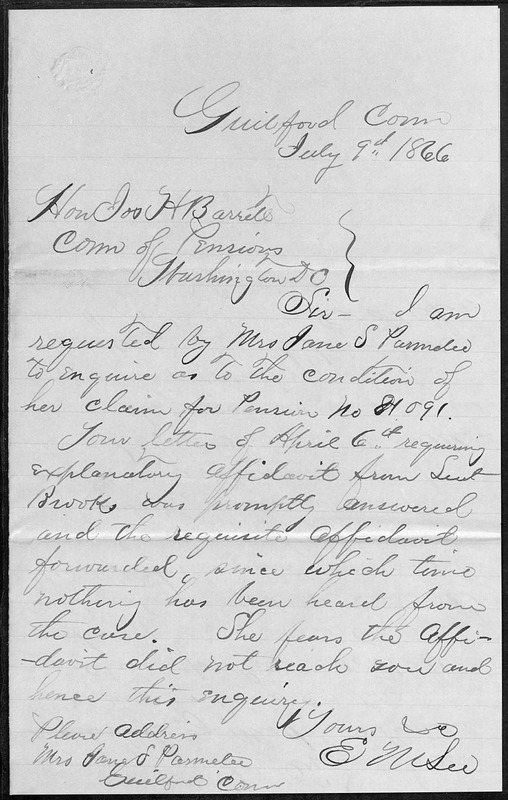 Guilford Conn
July 9th 1866
Hon Jos H Barrett
Com of Pensions
Washington DC
Sir- I am
requested by Mrs Jane S Parmelee
to enquire as to the condition of
her claim for Pension No 091.
Your letter of April 6th requiring
explanatory affidavit from Lieut
Brooks was promptly answered
and the requisite affidavit
forwarded, since which time
nothing has been heard from
the case. She fears the Affi-
-davit did not reach you and
hence this enquiry.
Yours &c
E M Lee
Please address
Mrs Jane S Parmelee
Guilford Conn